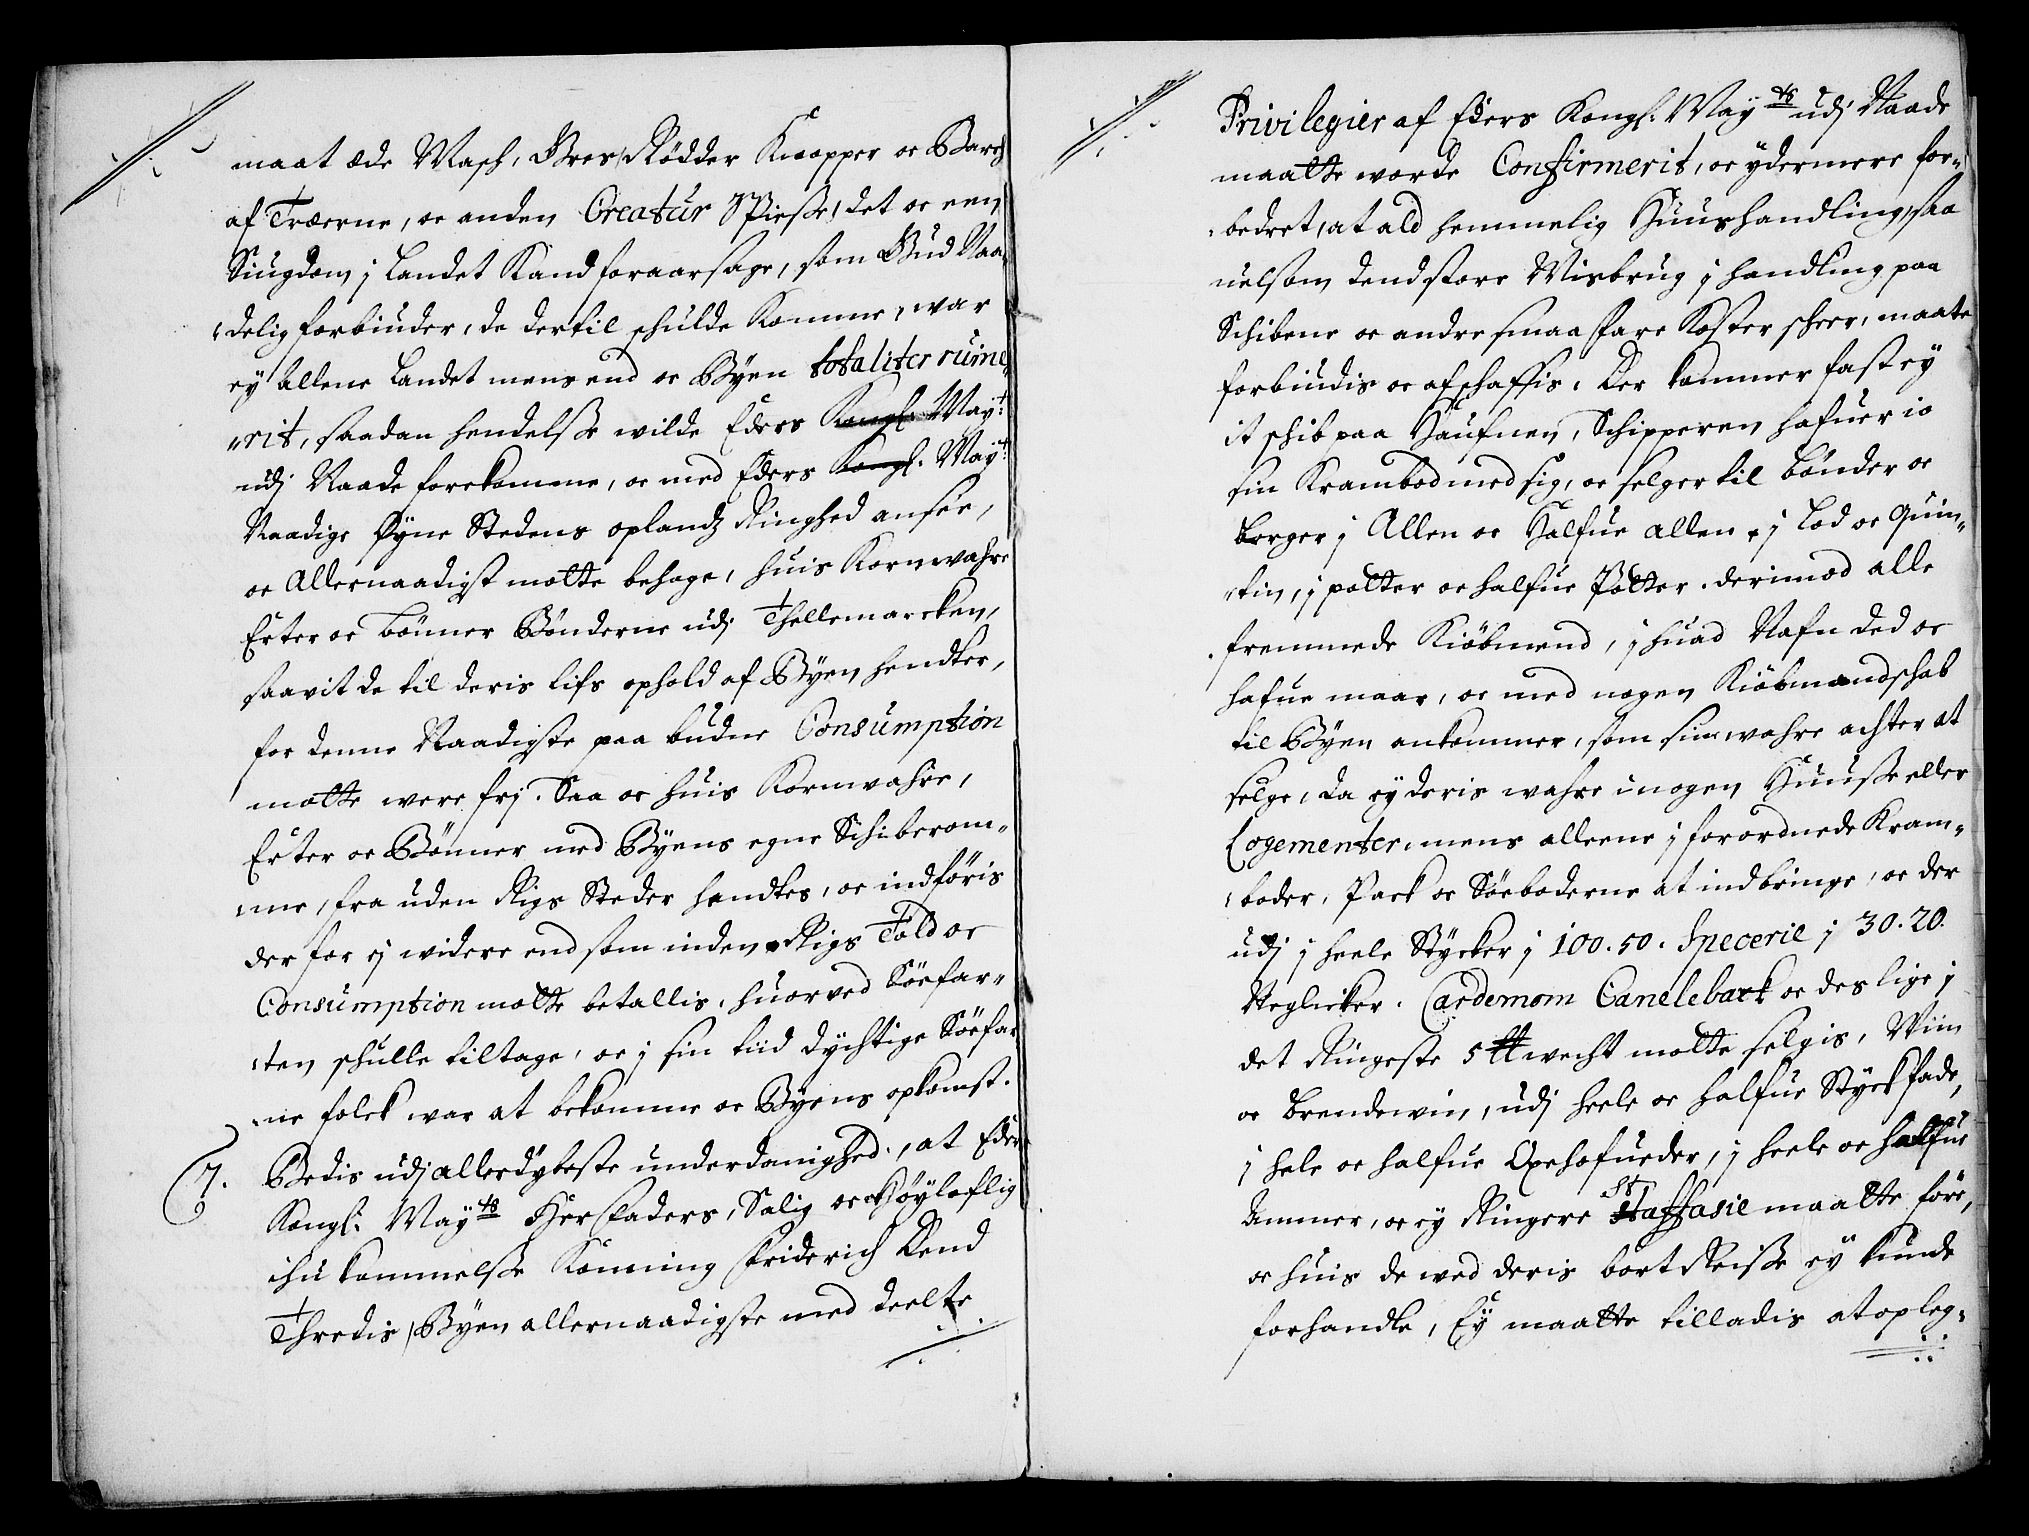 maat æde Mash, Gres, Rödder Knopper oc Barch
af Træerne, oc anden Creatur Spiesse, det oc een
Siugdom j Landet Kand foraarsage, som Gud Naa¬
delig forbiuder, de dertil schulde Komme, war
ey Allene Landet mens end oc Byen totaliter ruine¬
rit, saadan hendelsse wilde Eders Kongl. Mayt:
udj Naade forekomme, oc med Eders Kongl. Mayt:
Naadige Öyne Stedens oplandz Ringhed ansee,
oc Allernaadigst motte behage, huis Kornwahre
Erter oc bönner Bönderne udj Thellemarcken,
saavit de til deris lifs ophold af Byen hendter,
for denne Naadigste paa budne Consumption
motte were frj. Saa oc huis Kornwahre,
Erter oc Bönner med Byens egne Schiberom¬
me, fra uden Rigs Steder handles, oc indföris
der for ej widere end som inden Rigs Told oc
Consumption motte betallis, huorved Söefar¬
ten schulle tiltage, oc j sin tiid dychtige Söefa¬
ne folck war at bekomme oc Byens opkomst.
7. Bedis udj allerdybeste underdanighed, at Eders
Kongl. Mayts Her Faders, Salig oc Höyloflig
ihukommelsse Konning Friderich Dend
Thredis, Byen allernaadigste med deelte
Privilegier af Eders Kongl. Mayts udj Naade
maatte worde Confirmerit, oc ydermere for¬
bedret, at ald hemmelig Huushandling, saa
uelsom dend store Misbrug j handling paa
Schibene oc andre smaa fare Koster scheer, maate
forbiudis oc afschaffis. Der kommer fast ey
it schib paa Haufnen, Schipperen hafuer io
sin Krambod med sig, oc selger til bönder oc
borger j Allen oc Halfue allen, j Lod oc Quin¬
tin, j potter oc halfue Potter. derimod alle
fremmede Kiöbmend, j huad Nafn ded oc
hafue maar, oc med nogen Kiöbmandschab
til Byen ankommer, som sine wahre achter at
selge, da ey deris wahre i nogen Huusse eller
Logementer, mens alleene j forordnede Kram¬
boder, Pack oc Söeboderne at indbringe, oc der
udj j heele Stycker j 100. 50. Specerie j 30. 20.
Neglicker. Cardemom Canelebark oc deslige j
det Ringeste 5 ℔ wecht motte selgis, Wiin
oc brendewin, udj heele oc halfue Styckfade,
j hele oc halfue Oxehofueder, j heele oc halfue
Ammer, oc ey Ringere Staffasie maatte före,
oc huis de wed deris bort Reisse ey kunde
forhandle, Ey maatte tilladis at opleg¬